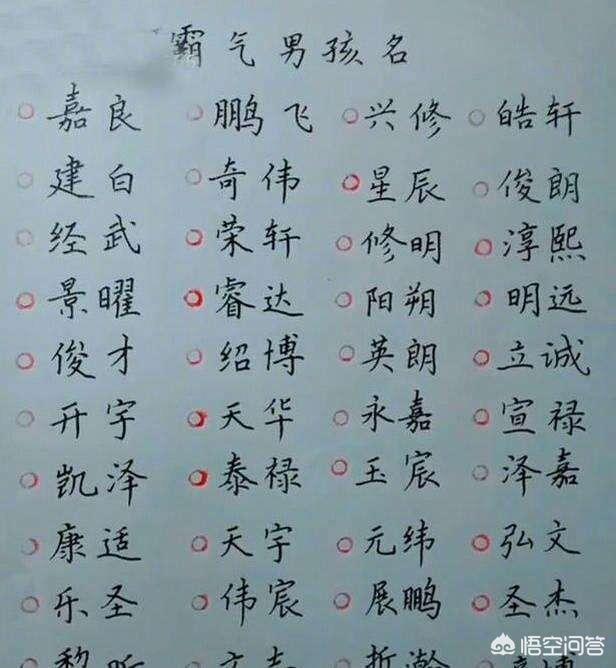 霸气男孩名
嘉良 鹏飞 兴修 皓轩
建白 奇伟 星辰 俊朗
经武 荣轩 修明 淳熙
景曜 睿达 阳朔 明远
俊才 绍博 英朗 立诚
开宇 天华 永嘉 宣禄
凯泽 泰禄 玉宸 泽嘉
康适 天宇 元纬 弘文
乐圣 伟宸 展鹏 圣杰
悟空问答